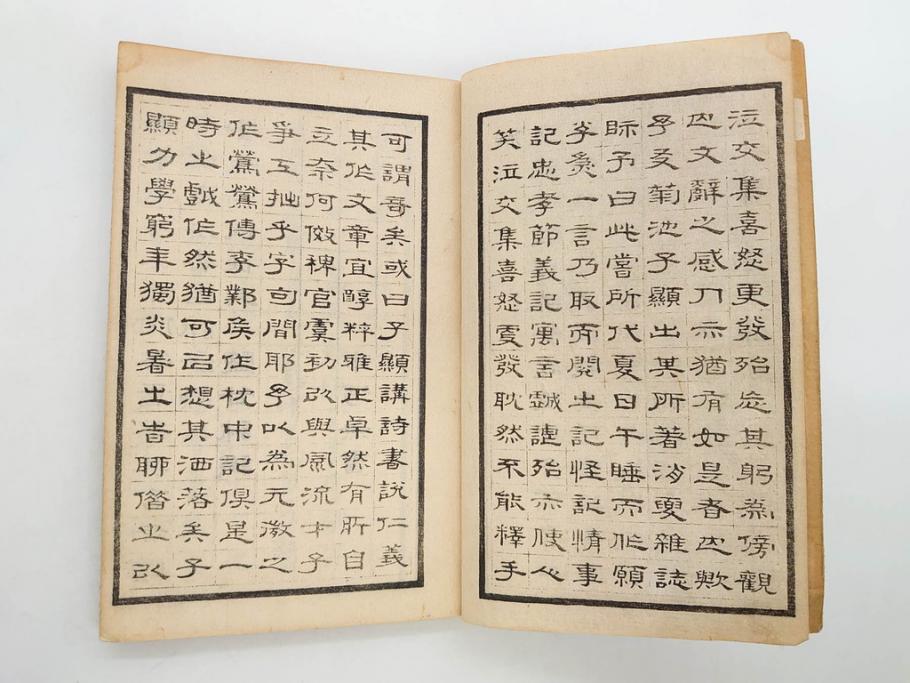 泣交集喜怒更發殆忘其躬為傍觀
也文辭之感人亦猶有如是者也歟
予友菊池子顯出其所著消夏雜誌
眎予曰此嘗所代夏日午睡而作願
予為一言乃取而閱之記怪記情事
記忠孝節義記寓言戲謔殆亦使人
笑泣交集喜怒更發耽然不能釋手
可謂奇矣或曰子顯講詩書說仁義
其作文章宜醇粹雅正卓然有所自
立奈何傚稗官虞初以與風流才子
爭工拙乎字句間耶予以為元微之
作鶯鶯傳李鄴侯作枕中記俱是一
時之戲作然猶可以想其洒落矣子
顯力學窮年獨炎暑之旹聊借之以